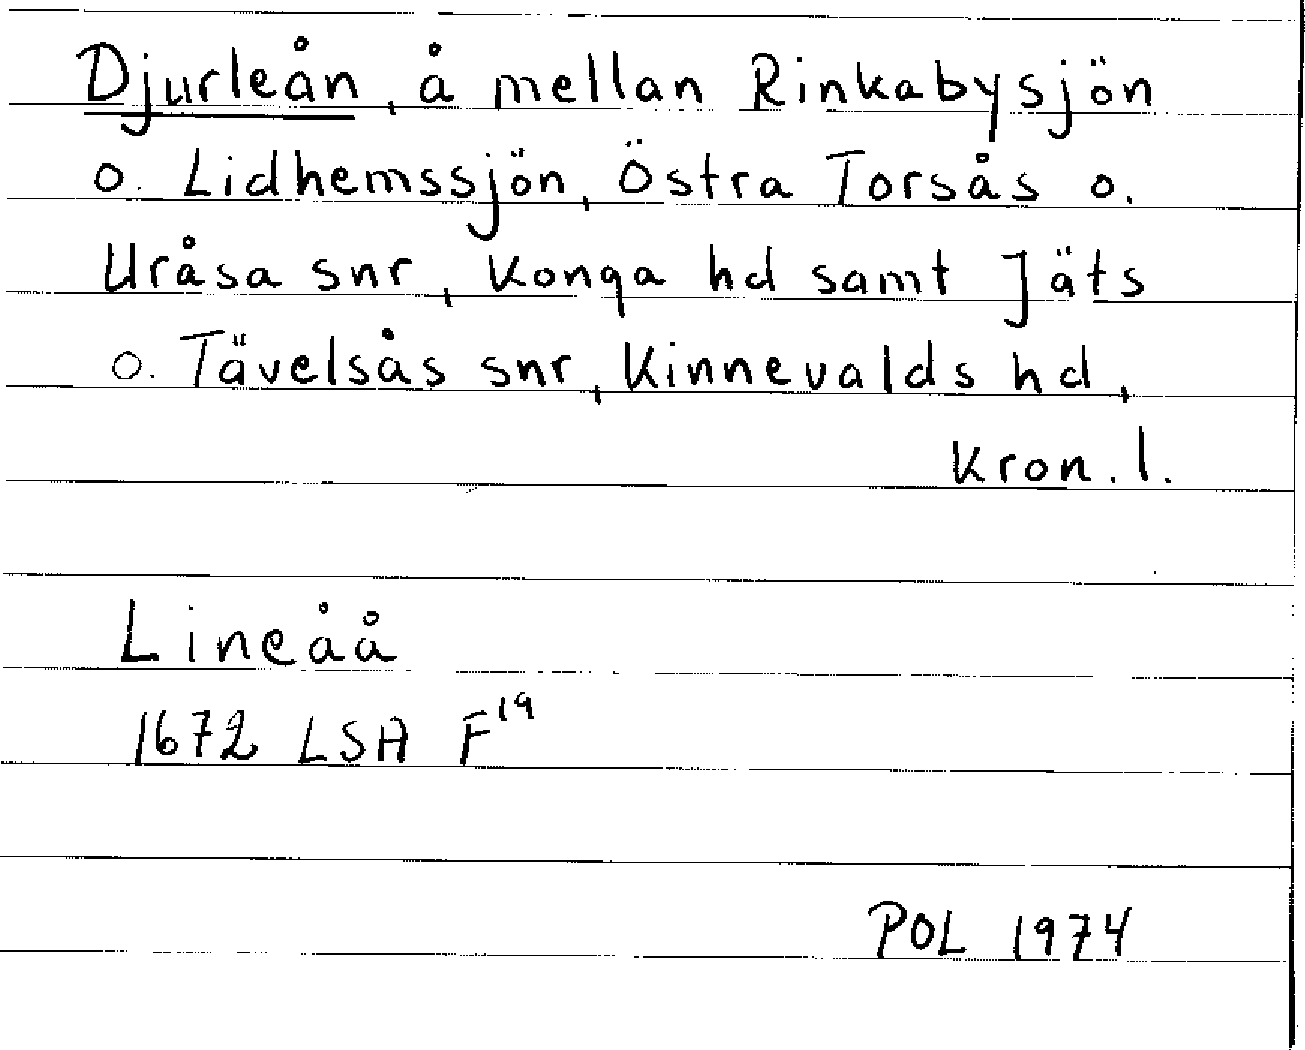 Djurleån, å mellan Rinkabysjön
o. Lidhemssjön, Östra Torsås o.
Uråsa snr, Konga hd samt Jäts
o. Tävelsås snr, Kinnevalds hd,
Kron. l.
Lineåå
1672 LSA F19
POL 1974